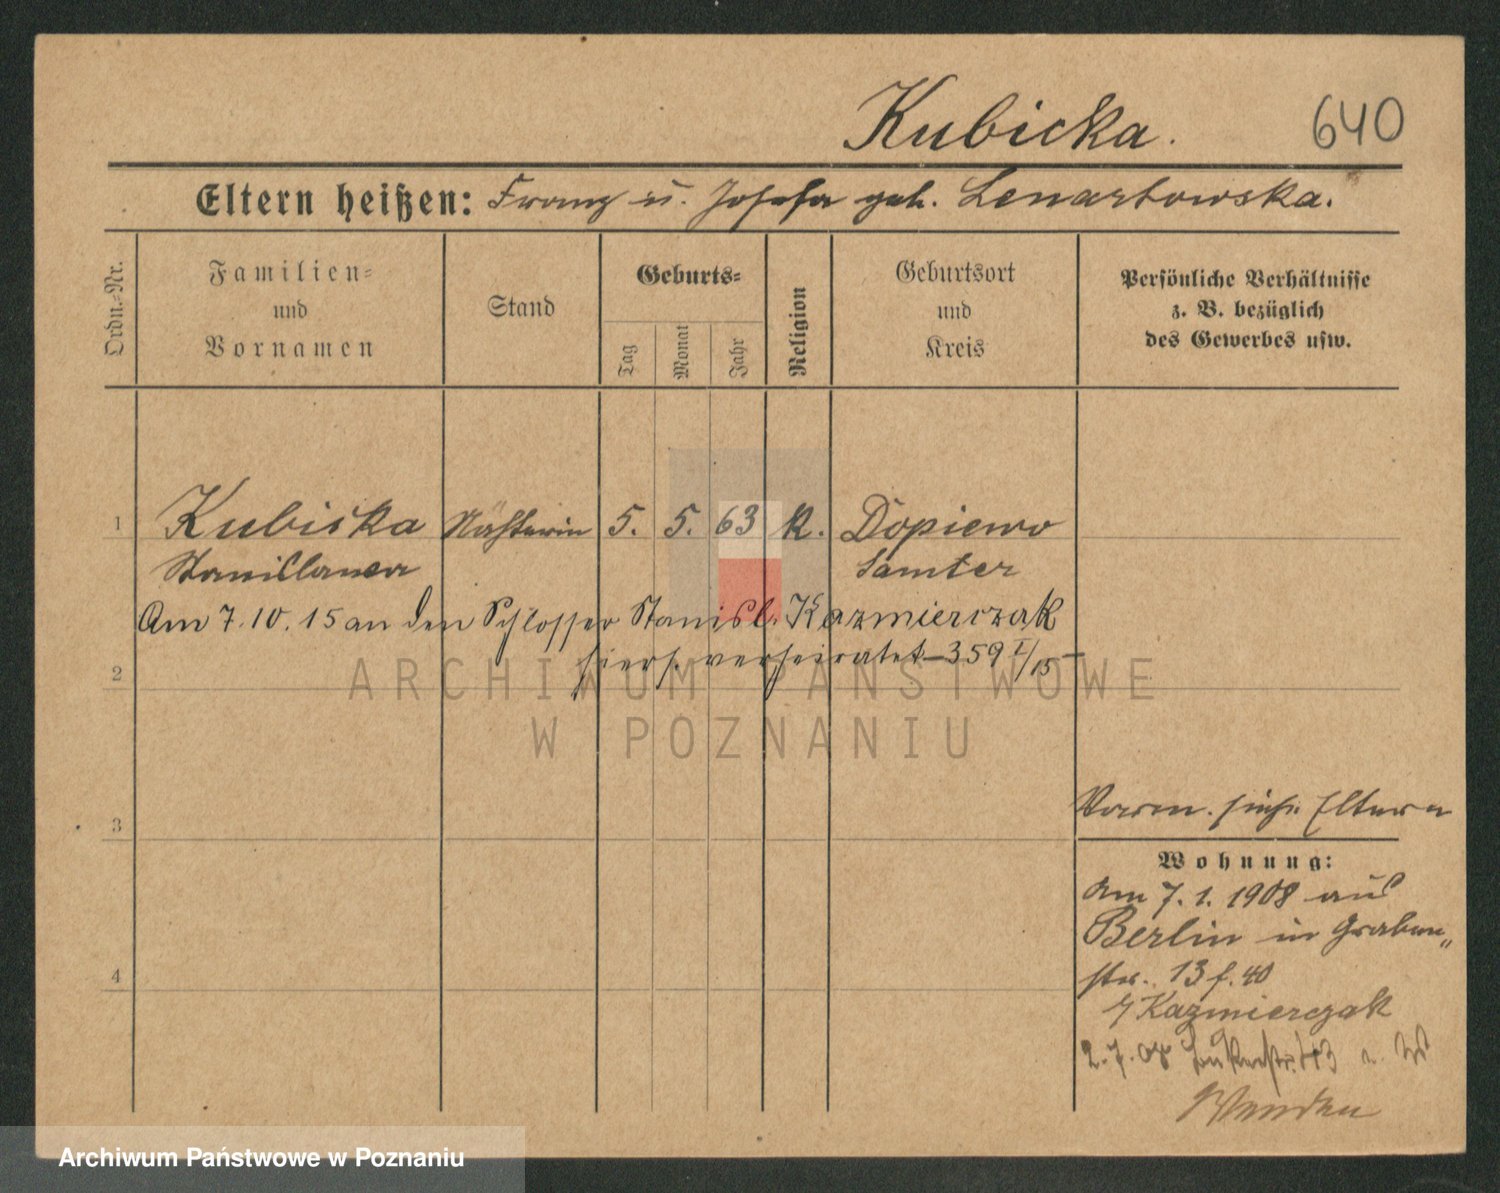 Kubicka.
640
Eltern heißen: Franz u. Josefa geb. Lenartowska.
Ordn.-Nr.
Familien-
und
Vornamen
Stand
Geburts-
Tag
Monat
Jahr
Religion
Geburtsort
und
Kreis
Persönliche Verhältnisse
z. B. bezüglich
des Gewerbes usw.
1 Kubicka Nähterin 5. 5. 63 k. Dopiewo
Stanislawa Samter
Am 7.10.15 an den Schlosser Stanisl. Kazmierczak
hiers. verheiratet – 359 I/15 –
2
ARCHIWUM PAŃSTWOWE
W POZNANIU
3
Vorm. siehe Eltern
Wohnung:
Am 7.1.1908 aus
Berlin in Graben„
str. 13 f. 40
Kazmierczak
4
2.7.08
Archiwum Państwowe w Poznaniu